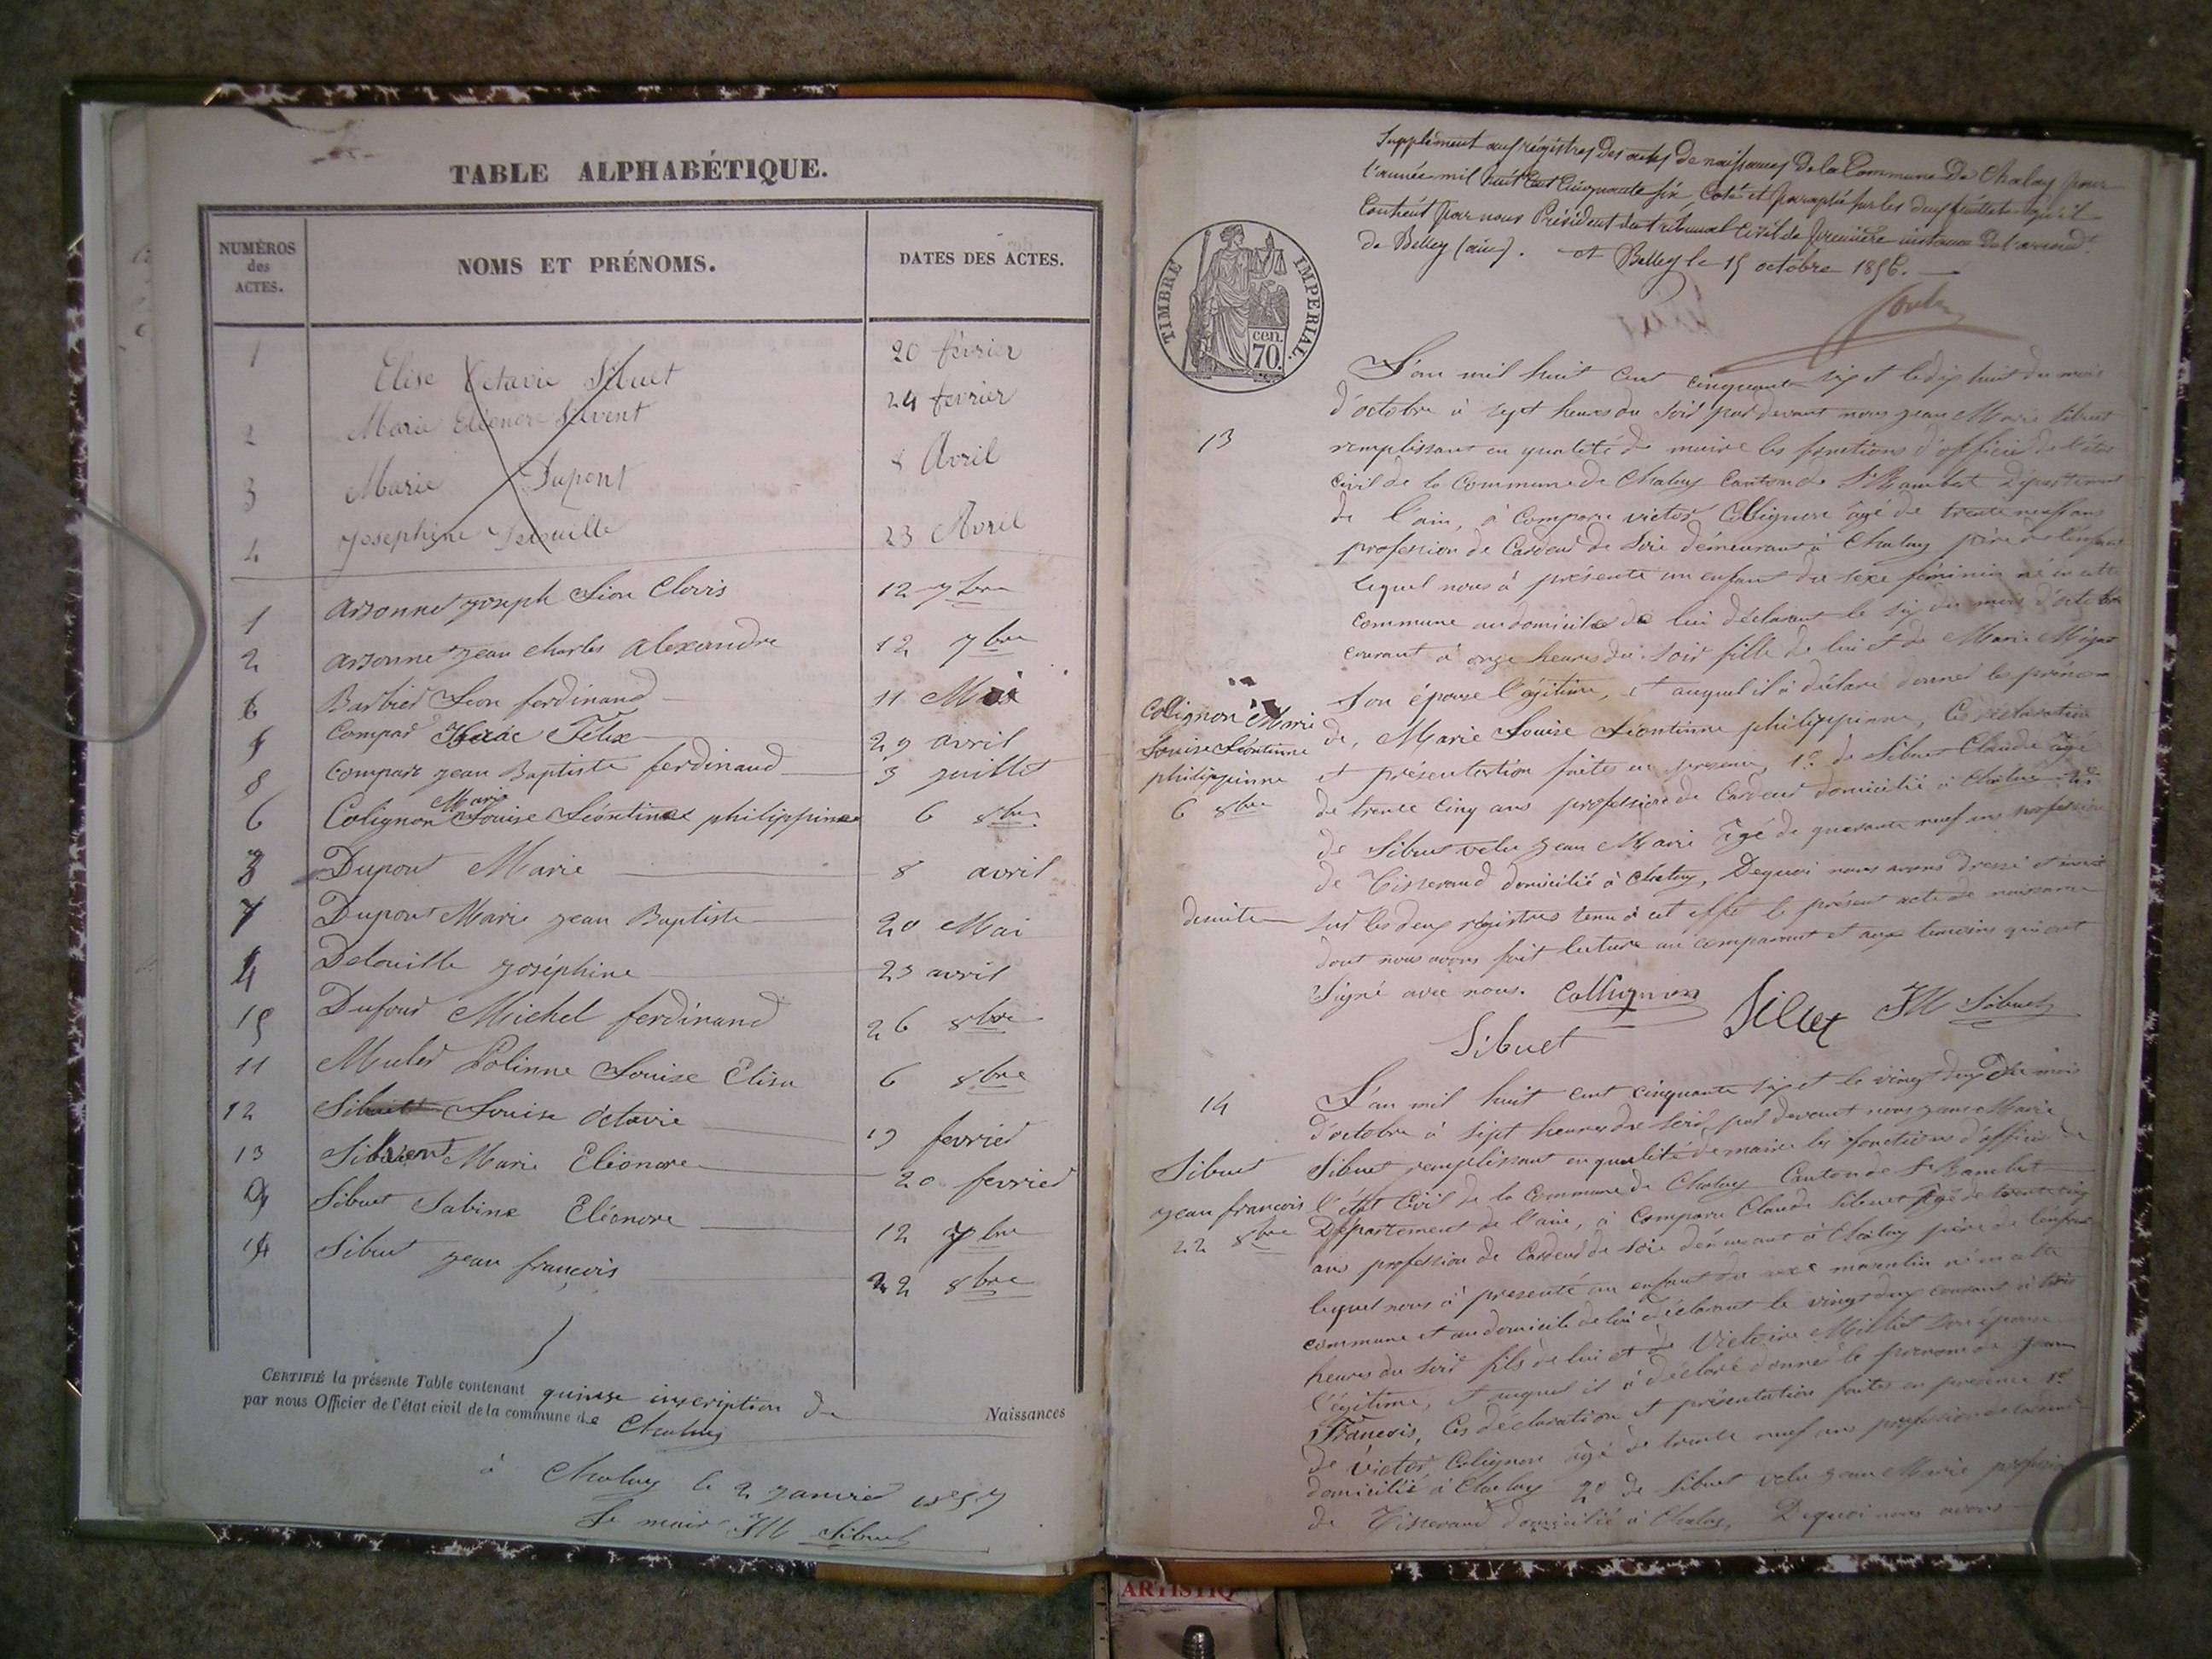 TABLE ALPHABÉTIQUE.
NUMÉROS des ACTES.
NOMS ET PRÉNOMS.
DATES DES ACTES.
1 Elise Octavie Sibuet 20 février
2 Marie Eléonore Sirvent 24 fevrier
3 Marie Dupont 8 Avril
4 Josephine 23 Avril
1 arsonnet joseph Léon Clovis 12 7bre
2 arsonnet jean charles alexandre 12 7bre
6 Barbier Leon ferdinand 11 Mai
5 Compar Félix 29 avril
8 Compare jean Baptiste ferdinand 3 juillet
6 Colignon Marie Louise Léontine philippine 6 8bre
3 Dupont Marie 8 avril
7 Dupont Marie jean Baptiste 20 Mai
4 Delouille joséphine 23 avril
15 Dufour Michel ferdinand 26 8bre
11 Mulet Polinne Louise Elisa 6 8bre
12 Louise Octavie 19 fevrier
13 Marie Eléonore 20 fevrier
9 Sibuet Sabine Eléonore 12 7bre
14 Sibuet jean françois 22 8bre
CERTIFIÉ la présente Table contenant quinze inscription de Naissances
par nous Officier de l'état civil de la commune de Chaley
à Chaley le 2 janvier 1857
Le maire JM Sibuet
Supplément aux régistres des actes de naissances de la Commune de Chaley pour
l'année mil huit Cent Cinquante six, Coté et paraphé sur les deux feuillets qu'il
Contient par nous Président du tribunal Civil de première instance de l'arrond.t
de Belley (ain). à Belley le 15 octobre 1856.
TIMBRE IMPERIAL.
cen. 70.
L'an mil huit cent cinquante six et le dix huit du mois
d'octobre à sept heures du soir par devant nous jean Marie Sibuet
13
remplissant en qualité de maire les fonctions d'officier de l'état
civil de la Commune de Chaley Canton de St Rambert Département
de l'ain, à Comparu victor Collignon âgé de trente neuf ans
profession de Cardeur de Soie démeurant à Chaley père de l'enfant
lequel nous à présenté un enfant du sexe féminin né en cette
commune au domicile de lui déclarant le six du mois d'octobre
courant à onze heures du soir fille de lui et de Marie
Son épouse légitime, et auquel il à déclaré donner les prénom
Collignon Marie
Louise Léontinne
philippinne
6 8bre
de, Marie Louise Léontinne philippinne, Ces déclaration
et présentation faites en presence, 1o de Sibuet Claude âgé
de trente Cinq ans profession de Cardeur domicilié à Chaley 2o
de Sibuet velu jean Marie âgé de quarante neuf ans profession
de Tisserand domicilié à Chaley, Dequoi nous avons dressé et inscrit
de suite sur les deux régistres tenu à cet effet le présent acte de naissance
dont nous avons fait lecture au comparant et aux temoins qui ont
Signé avec nous. Collignon Sibuet JM Sibuet
Sibuet
L'an mil huit cent cinquante six et le vingt deux du mois
14
d'octobre à sept heures du soir, par devant nous jean Marie
Sibuet remplissant en qualité de maire les fonctions d'officier de
Sibuet
jean francois
22 8bre
l'état Civil de la Commune de Chaley Canton de St Rambert
Département de l'ain, à Comparu Claude Sibuet âgé de trente cinq
ans profession de Cardeur de Soie démeurant à Chaley père de l'enfant
lequel nous à presenté un enfant du sexe masculin né en cette
commune et au domicile de lui déclarant le vingt deux courant à trois
heures du soir fils de lui et de Victoire Milliet Son épouse
légitime, et auquel il à déclaré donné le prenom de jean
François, Ces déclaration et présentation faites en presence 1o
de victor Colignon âgé de trente neuf ans profession de
domicilié à Chaley 2o de Sibuet velu jean Marie profession
de Tisserand domicilié à Chaley, Dequoi nous avons
ARTISTIQ